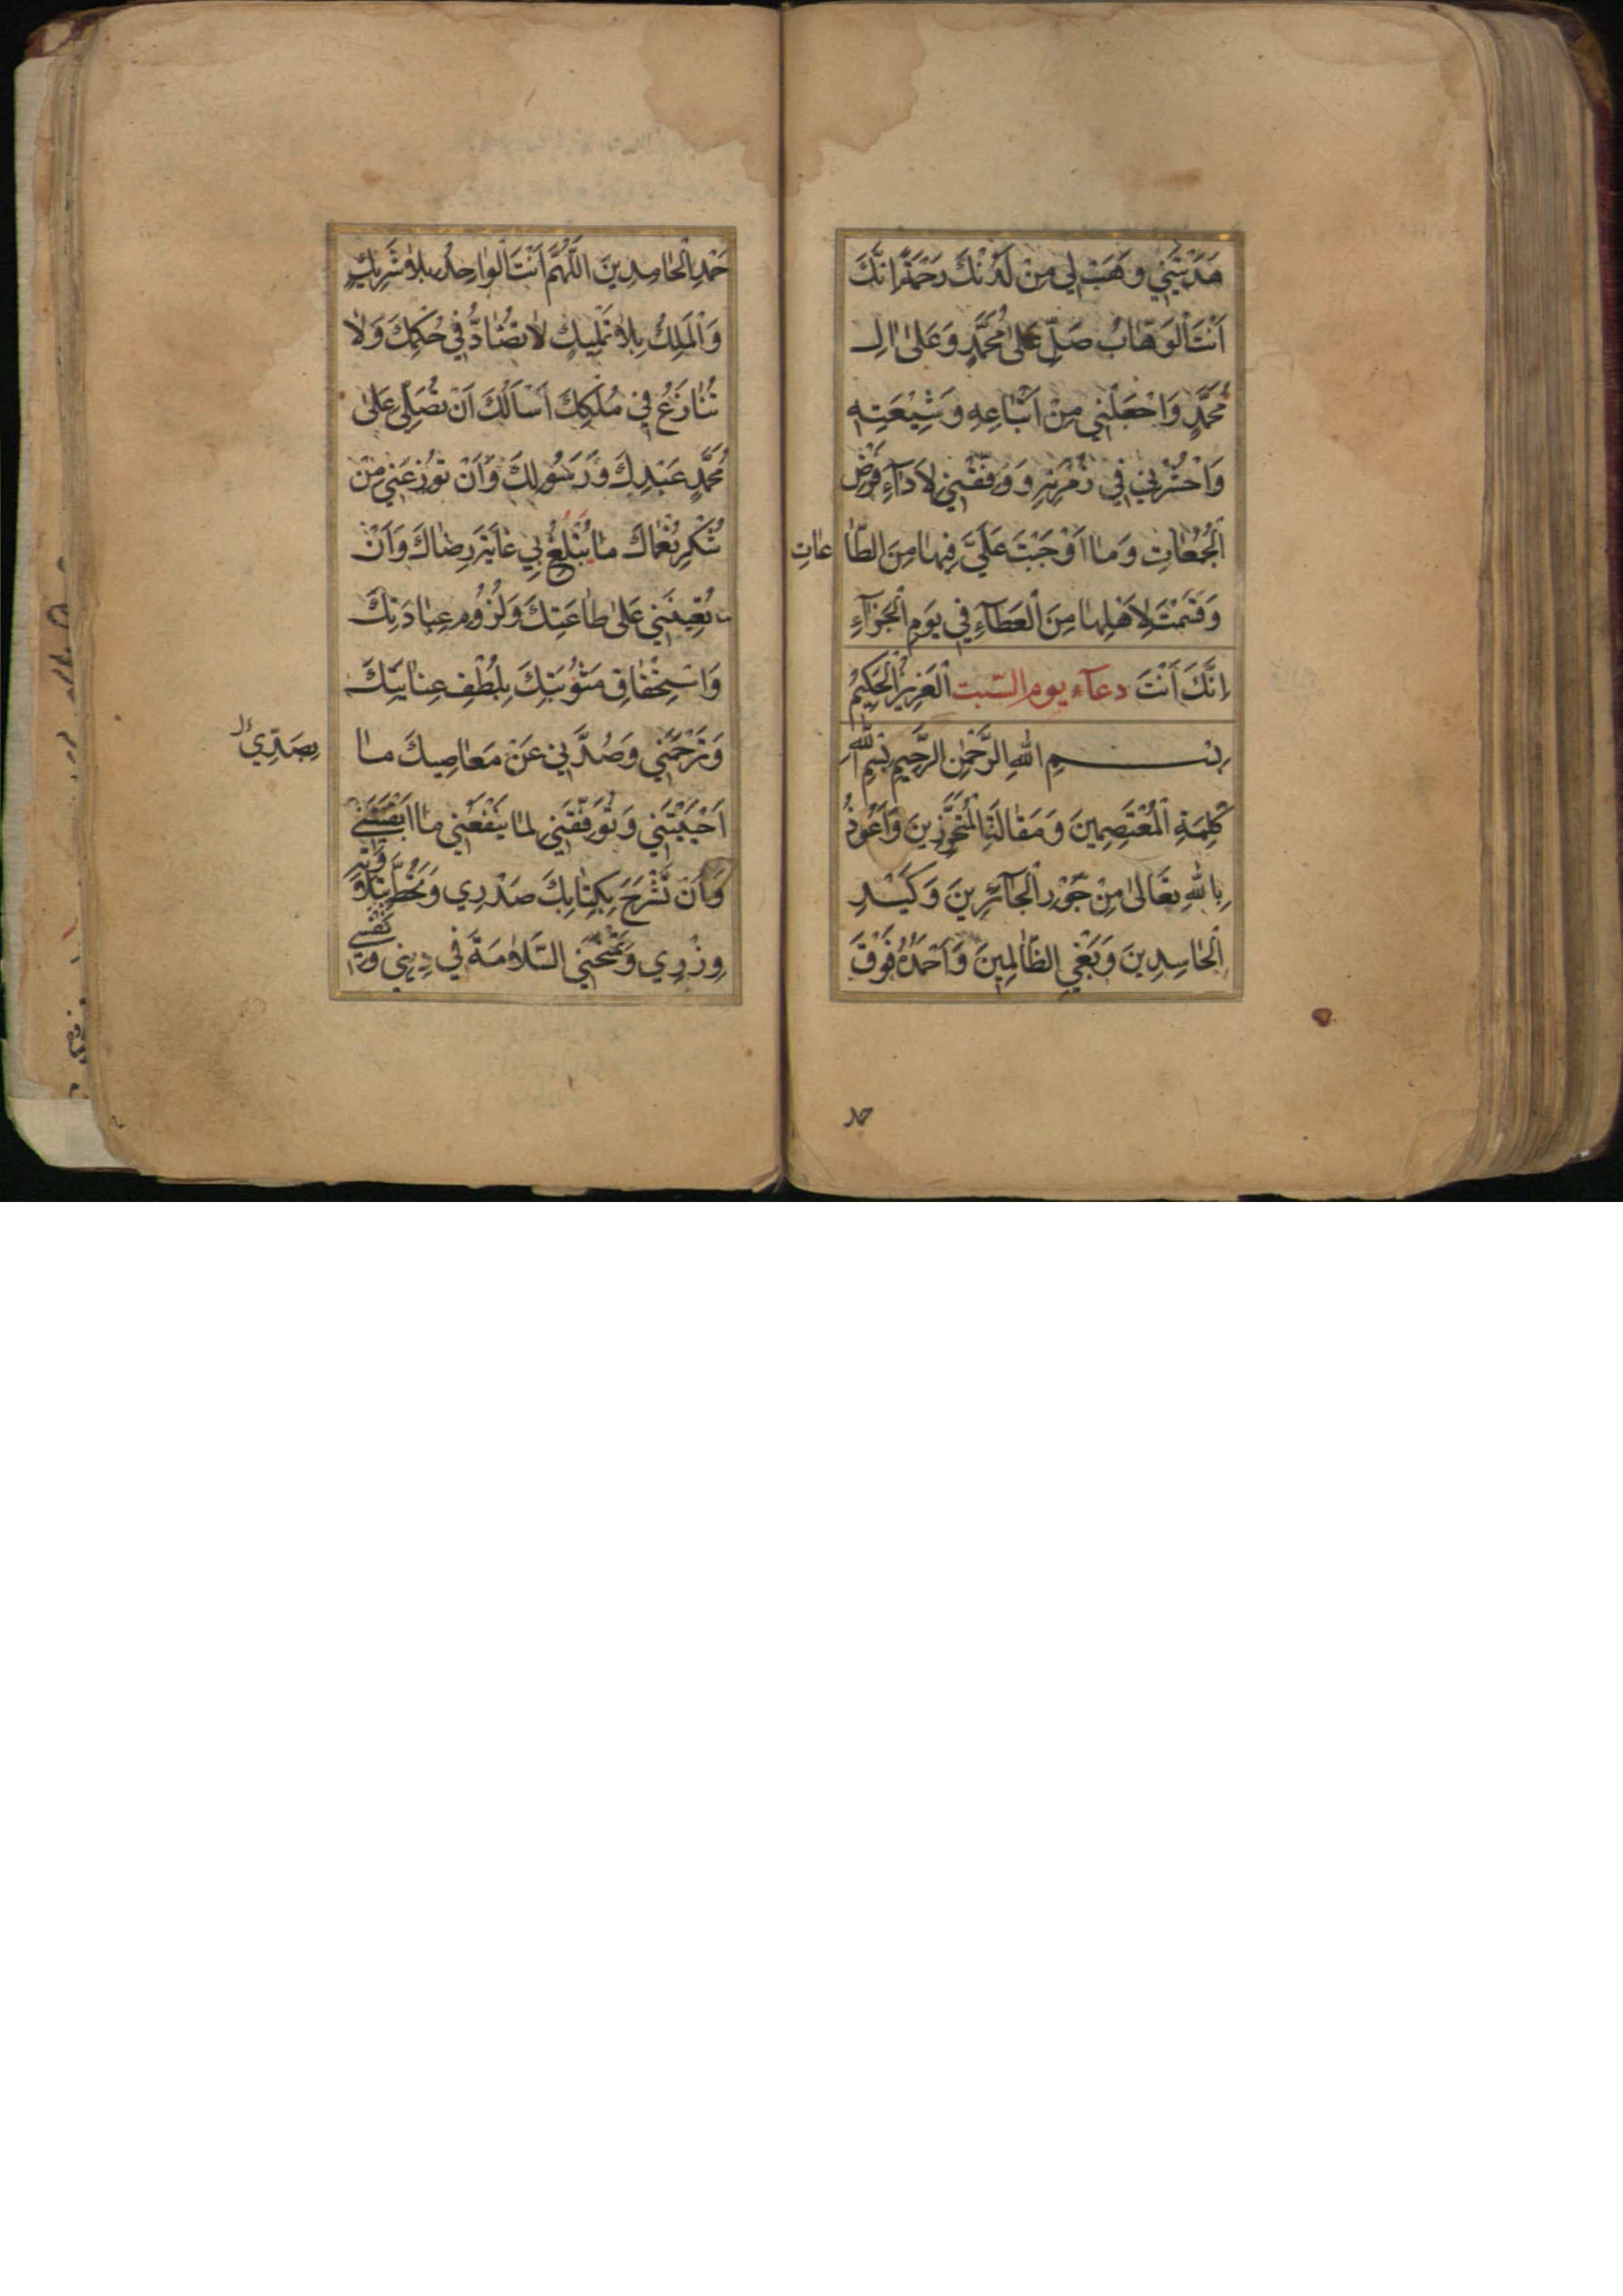 هَدَيْتَنِي وَهَبْ لِي مِنْ لَدُنْكَ رَحْمَةً اِنَّكَ
اَنْتَ الْوَهَّابُ صَلِّ عَلىٰ مُحَمَّدٍ وَعَلىٰ اٰلِ
مُحَمَّدٍ وَاجْعَلْنِي مِنْ اَتْبَاعِهِ وَشِيْعَتِهِ
وَاحْشُرْنِي فِي زُمْرَتِهِ وَوَفِّقْنِي لِاَدَآءِ فَرْضِ
الْجُمُعَاتِ وَمَا اَوْجَبْتَ عَلَيَّ فِيهَا مِنَ الطَّاعَاتِ
وَقَسَمْتَ لِاَهْلِهَا مِنَ الْعَطَآءِ فِي يَوْمِ الْجَزَآءِ
اِنَّكَ اَنْتَ دعآء يوم السّبت الْعَزِيزُ الْحَكِيمُ
بِسْمِ اللهِ الرَّحْمٰنِ الرَّحِيمِ بِسْمِ اللهِ
كَلِمَةِ الْمُعْتَصِمِينَ وَمَقَالَةِ الْمُتَحَرِّزِينَ وَاَعُوذُ
بِاللهِ تَعَالىٰ مِنْ جَوْرِ الْجَآئِرِينَ وَكَيْدِ
الْحَاسِدِينَ وَبَغْيِ الظَّالِمِينَ وَاَحْمَدُهُ فَوْقَ
حمد
حَمْدِ الْحَامِدِينَ اللّٰهُمَّ اَنْتَ الْوَاحِدُ بِلَا شَرِيكٍ
وَالْمَلِكُ بِلَا تَمْلِيكٍ لَا تُضَادُّ فِي حُكْمِكَ وَلَا
تُنَازَعُ فِي مُلْكِكَ اَسْاَلُكَ اَنْ تُصَلِّيَ عَلىٰ
مُحَمَّدٍ عَبْدِكَ وَرَسُولِكَ وَاَنْ تُوزِعَنِي مِنْ
شُكْرِ نُعْمَاكَ مَا يَبْلُغُ بِي غَايَةَ رِضَاكَ وَاَنْ
تُعِينَنِي عَلىٰ طَاعَتِكَ وَلُزُومِ عِبَادَتِكَ
وَاسْتِحْقَاقِ مَثُوبَتِكَ بِلُطْفِ عِنَايَتِكَ
وَتَرْحَمَنِي وَصُدَّنِي عَنْ مَعَاصِيكَ مَا
بِصَدِّي
اَحْيَيْتَنِي وَتُوَفِّقَنِي لِمَا يَنْفَعُنِي مَا اَبْقَيْتَنِي
وَاَنْ تَشْرَحَ بِكِتَابِكَ صَدْرِي وَتَحُطَّ بِتِلَاوَتِهِ
وِزْرِي وَتَمْنَحَنِي السَّلَامَةَ فِي دِينِي وَنَفْسِي